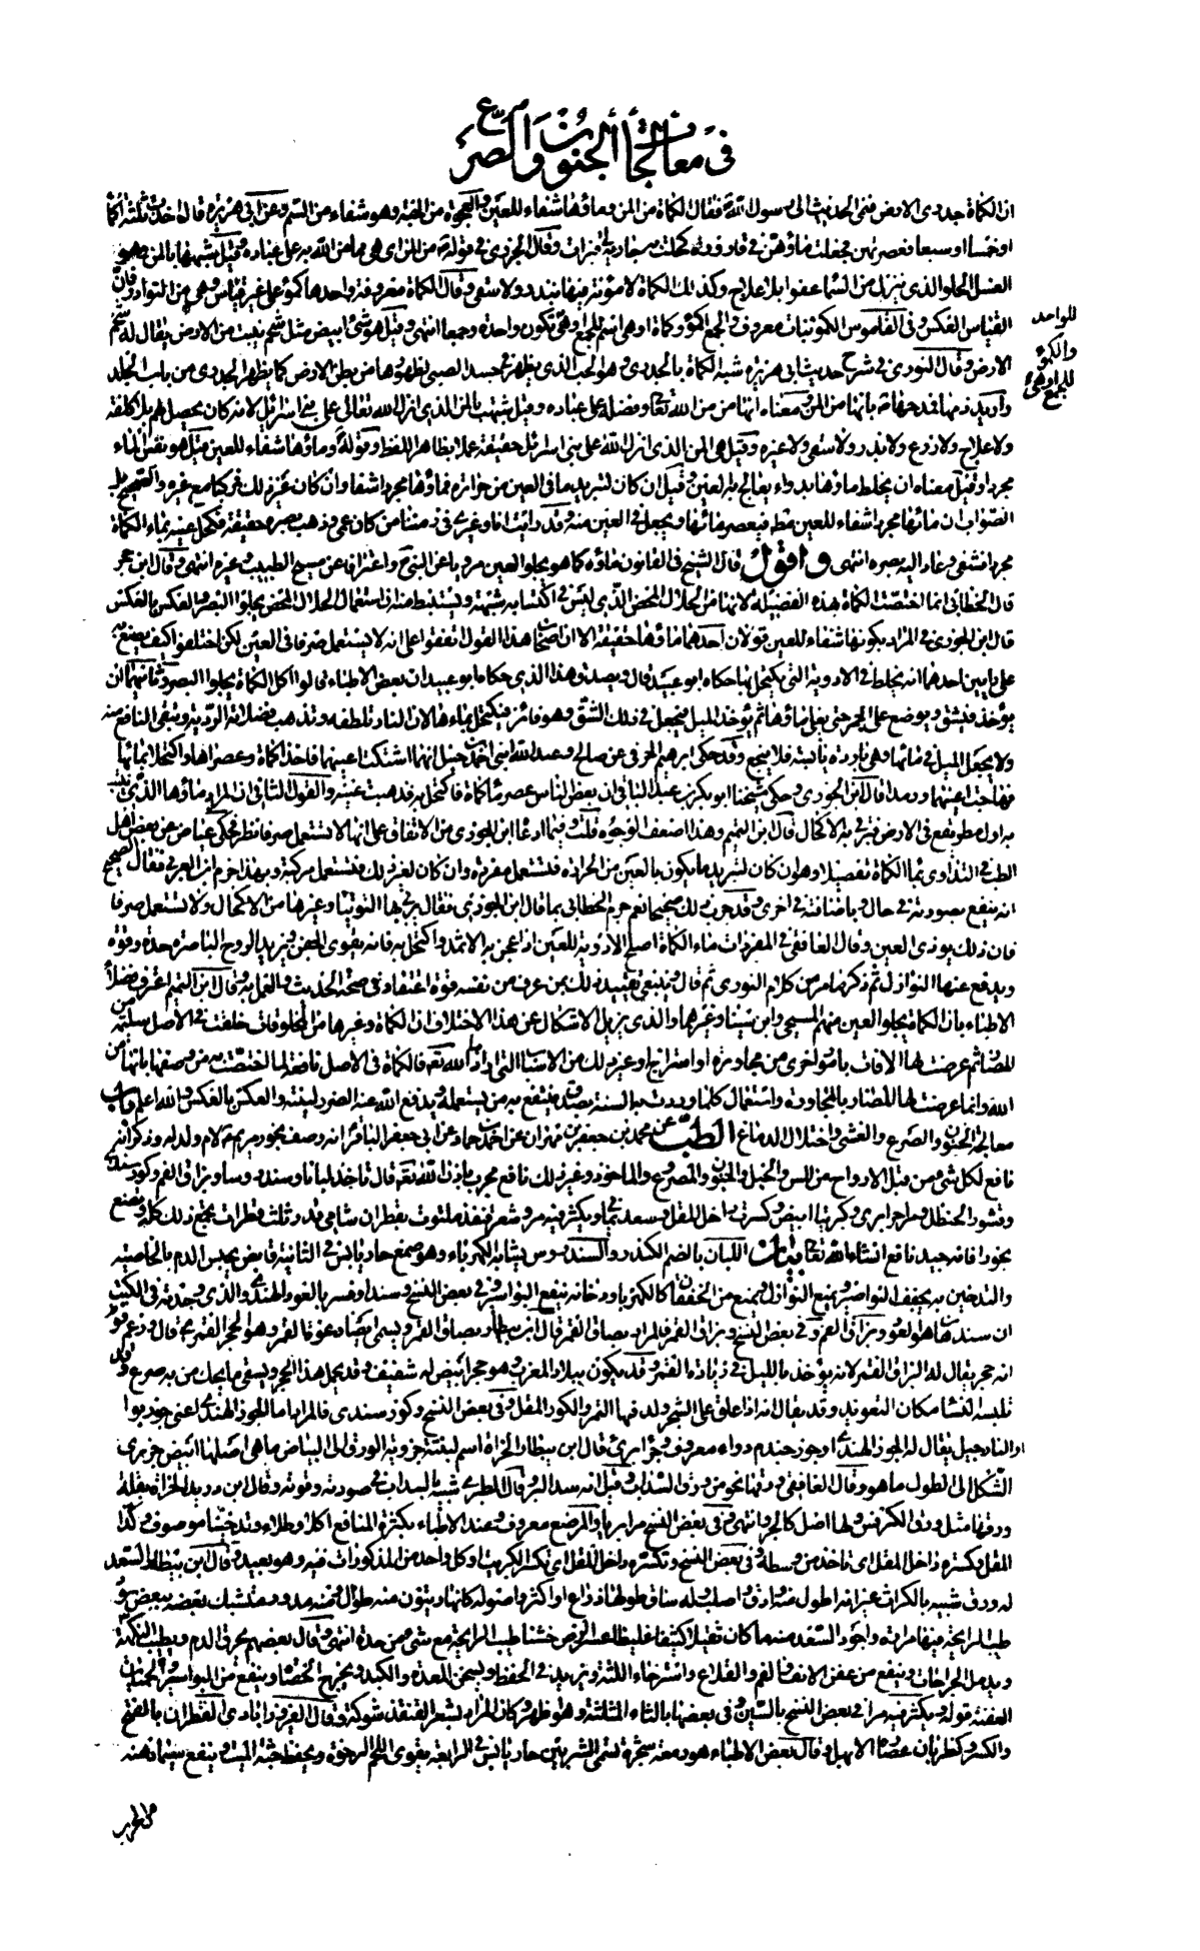 في معالجات الجنون والصرع
ان الكمأة جدري الارض فنمى الحديث الى رسول الله فقال الكمأة من المن وماؤها شفاء للعين والعجوة من الجنة وهو شفاء من السم وعن ابي هريرة قال اخذت ثلثة اكمأ
او خمسا او سبعا فعصرتهن فجعلت ماؤهن في قارورة كحلت به جارية لي فبرات وقال الجزري في قوله من المن اي هي مما من الله به على عباده وقيل شبهها بالمن وهو
العسل الحلو الذي ينزل من السماء عفوا بلا علاج وكذلك الكمأة لا مؤنة فيها ببذر ولا سقي وقال الكمأة معروفة واحدها كمؤ على غير قياس وهي من النوادر فان
القياس العكس وفي القاموس الكمؤ نبات معروف والجمع اكمؤ وكمأة او هي اسم للجمع او هي تكون واحدة وجمعا انتهى وقيل هو شئ ابيض مثل شحم ينبت من الارض يقال له شحم
للواحد
والكمؤ
للجمع او هي
الارض وقال النووي في شرح حديث ابي هريرة شبه الكمأة بالجدري وهو الحب الذي يظهر في جسد الصبي لظهورها من بطن الارض كما يظهر الجدري من باطن الجلد
واريد ذمها فمدحها بانها من المن ومعناه انها من من الله تعالى وفضله على عباده وقيل شبهت بالمن الذي انزل الله تعالى على بني اسرائيل لانه كان يحصل لهم بلا كلفة
ولا علاج ولا زرع ولا بذر ولا سقي ولا غيره وقيل هي المن الذي انزل الله على بني اسرائيل حقيقة عملا بظاهر اللفظ وقوله وماؤها شفاء للعين قيل هو نفس الماء
مجردا وقيل معناه ان يخلط ماؤها بدواء يعالج به العين وقيل ان كان لتبريد ما في العين من حرارة فماؤها مجردا شفاء وان كان غير ذلك فمركبا مع غيره والصحيح بل
الصواب ان ماءها مجردا شفاء للعين مطلقا فيعصر ماؤها ويجعل في العين منه وقد رايت انا وغيري في زمننا من كان عمي وذهب بصره حقيقة فكحل عينه بماء الكمأة
مجردا فشفي وعاد اليه بصره انتهى واقول قال الشيخ في القانون ماؤه كما هو يجلو العين مرويا عن النبي واعترافا عن مسيح الطبيب وغيره انتهى وقال ابن حجر
قال الخطابي انما اختصت الكمأة بهذه الفضيلة لانها من الحلال المحض الذي ليس في اكتسابه شبهة ويستنبط منه ان استعمال الحلال المحض يجلو البصر والعكس بالعكس
قال ابن الجوزي في المراد بكونها شفاء للعين قولان احدهما ماؤها حقيقة الا ان اصحاب هذا القول اتفقوا على انه لا يستعمل صرفا في العين لكن اختلفوا كيف يصنع به
على رايين احدهما انه يخلط في الادوية التي يكتحل بها حكاه ابو عبيد قال ويصدق هذا الذي حكاه ابو عبيد ان بعض الاطباء قالوا اكل الكمأة يجلو البصر وثانيهما ان
يؤخذ فيشق ويوضع على الجمر حتى يغلي ماؤها ثم يؤخذ الميل فيجعل في ذلك الشق وهو فاتر فيكتحل بماءها لان النار تلطفه وتذهب فضلاته الردية ويبقى النافع منه
ولا يجعل الميل في مائها وهي باردة يابسة فلا ينجع وقد حكى ابرهيم الحربي عن صالح وعبد الله ابني احمد بن حنبل انهما اشتكت اعينهما فاخذا كمأة وعصراها واكتحلا بمائها
فهاجت عينهما ورمدا قال ابن الجوزي وحكى شيخنا ابو بكر بن عبد الباقي ان بعض الناس عصر ماء كمأة فاكتحل به فذهبت عينه والقول الثاني ان المراد ماؤها الذي تنبت
به اول مطر يقع في الارض فتربى به الاكحال قال ابن القيم وهذا اضعف الوجوه قلت فيما ادعاه ابن الجوزي من الاتفاق على انها لا تستعمل صرفا نظر فحكى عياض عن بعض اهل
الطب في التداوي بماء الكمأة تفصيلا وهو ان كان لتبريد ما يكون بالعين من الحرارة فتستعمل مفردة وان كان لغير ذلك فتستعمل مركبة وبهذا جزم ابن العربي فقال الصحيح
انه ينفع بصورته في حال وباضافته في اخرى وقد جرب ذلك فوجد صحيحا نعم جزم الخطابي بما قال ابن الجوزي فقال تربى بها التوتيا وغيرها من الاكحال ولا تستعمل صرفا
فان ذلك يوذي العين وقال الغافقي في المفردات ماء الكمأة اصلح الادوية للعين اذا عجن به الاثمد واكتحل به فانه يقوي الجفن ويزيد الروح الباصرة حدة وقوة
ويدفع عنها النوازل ثم ذكر ما مر من كلام النووي ثم قال وينبغي تقييد ذلك بمن عرف من نفسه قوة اعتقاد في صحة الحديث والعمل به وقال ابن القيم اعترف فضلاء
الاطباء بان الكمأة يجلو العين منهم المسيحي وابن سينا وغيرهما والذي يزيل الاشكال عن هذا الاختلاف ان الكمأة وغيرها من المخلوقات خلقت في الاصل سليمة من
المضار ثم عرضت لها الافات بامور اخرى من مجاورة او امتزاج او غير ذلك من الاسباب التي ارادها الله تعه فالكمأة في الاصل نافعة لما اختصت به من وصفها بانها من
الله وانما عرضت لها المضار بالمجاورة واستعمال كلما وردت به السنة بصدق ينتفع به من يستعمله ويدفع الله عنه الضرر لنيته والعكس بالعكس والله اعلم باب
معالجة الجنون والصرع والغشي واختلال الدماغ الطب عن محمد بن جعفر بن مهران عن احمد بن حماد عن ابي جعفر الباقر انه وصف بخور مريم لام ولد له وذكر انه
نافع لكل شئ من قبل الارواح من المس والخبل والجنون والمصروع والماخوذ وغير ذلك نافع مجرب باذن الله تعه قال تاخذ لبانا وسندروسا وبزاق الفم وكور سندي
وقشور الحنظل ومراجوابري وكبريتا ابيض وكسرت داخل المقل وسعد يماني ويكثر فيه مر وشعر قنفذ ملتوت بقطران شامي قدر ثلث قطرات يجمع ذلك كله ويصنع
بخورا فانه جيد نافع انشاء الله تعالى بيان اللبان بالضم الكندر والسندروس يشابه الكهرباء وهو صمغ حار يابس في الثانية قابض يحبس الدم بالخاصية
والتدخين به يجفف النواصر ويمنع النوازل ويمنع من الخفقان كالكهربا ودخانه ينفع البواسير وفي بعض النسخ وسندا وفسر بالعود الهندي والذي وجدته في الكتب
ان سندهان هو العود وبزاق الفم وفي بعض النسخ وبزاق القمر فالمراد بصاق القمر قال ابن بيطار وبصاق القمر ويسمى ايضا رغوة القمر وهو الحجر القمري قال وزعم قوم
انه حجر يقال له البزاق القمر لانه يؤخذ بالليل في زيادة القمر وقد يكون ببلاد المغرب وهو حجر ابيض له شفيف وقد يحك هذا الحجر ويسقى ما يحك من به صرع وقد
تلبسه النساء مكان التعويذ وقد يقال انه اذا علق على الشجر ولد فيها الثمر والكور المقل وفي بعض النسخ وكوز سندي فالمراد اما الجوز الهندي اعني جوز بوا
او النارجيل يقال له الجوز الهندي او جوز جندم دواء معروف وجوابري قال ابن بيطار الحزاة اسم لبقلة جزرية الورق الى البياض ما هي اصلها ابيض جزري
الشكل الى الطول ما هو وقال الغافقي ورقها نحو من ورق السداب وقيل انه سداب البر قال الطبري شبيه بالسداب في صورته وقوته وقال ابن دريد الحزاة بقلة
ورقها مثل ورق الكرفس ولها اصل كالجزر انتهى وفي بعض النسخ مر ابريا والمرصع معروف وعند الاطباء بكثرة المنافع اكلا وطلاء وتدخينا موصوف وكذا
المقل وكسره داخل المقل اي تاخذ من وسطه وفي بعض النسخ وتكسره داخل المقل اي تكسر الكبريت او كل واحد من المذكورات فيه وهو بعيد وقال ابن بيطار السعد
له ورق شبيه بالكراث غير انه اطول منه وادق واصلب وله ساق طولها ذراع او اكثر واصوله كانها زيتون منه طوال ومنه مدور متشبك بعضه ببعض سود
طيب الرايحة فيها مرارة واجود السعد منه ما كان ثقيلا كثيفا غليظا عسر الرض خشنا طيب الرايحة مع شئ من حدة انتهى وقال بعضهم يحرق الدم ويطيب النكهة
ويدمل الجراحات وينفع من عفن الانف والفم والقلاع واسترخاء اللثة ويزيد في الحفظ ويسخن المعدة والكبد ويخرج الحصاة وينفع من البواسير والحميات
العفنة قوله ويكثر فيه مر في بعض النسخ بالسين وفي بعضها بالثاء المثلثة وهو اظهر وكان المراد بشعر القنفذ شوكه وقال الفيروزابادي القطران بالفتح
والكسر وكظربان عصارة الابهل وقال بعض الاطباء هو دمعة شجرة تسمى الشربين حار يابس في الرابعة يقوي اللحم الرخوة ويحفظ جثة الميت وينفع سيما دهنه
من الجرب